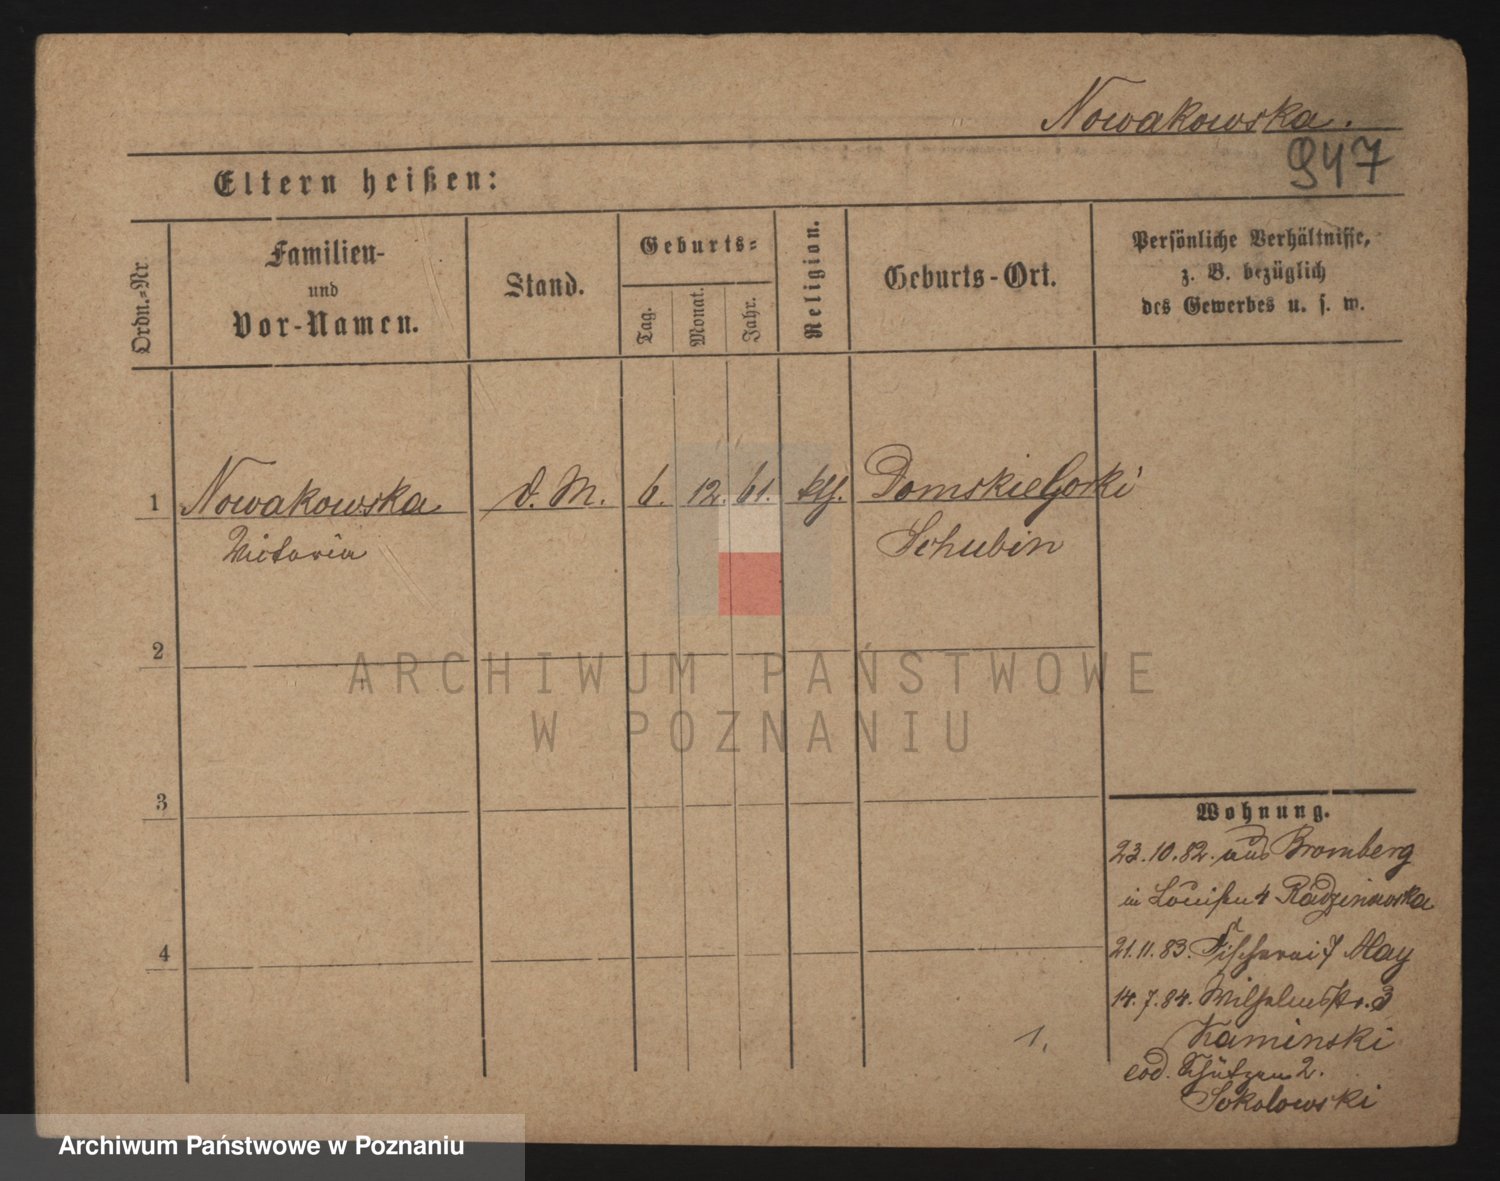 Nowakowska.
947
Eltern heißen:
Ordn.-Nr.
Familien-
und
Vor-Namen.
Stand.
Geburts-
Tag.
Monat.
Jahr.
Religion.
Geburts-Ort.
Persönliche Verhältnisse,
z. B. bezüglich
des Gewerbes u. s. w.
1 Nowakowska d. M. 6. 12. 61. kth. Domskie Gorki
Victoria Schubin
2
3
4
ARCHIWUM PAŃSTWOWE
W POZNANIU
Wohnung.
23.10.82. aus Bromberg
in Louisen 4 Radzinowska
21.11.83. Fischerei 7 May
14.7.84. Wilhelmstr. 3
Kaminski
eod. Schützen 2.
Sokolowski
1.
Archiwum Państwowe w Poznaniu